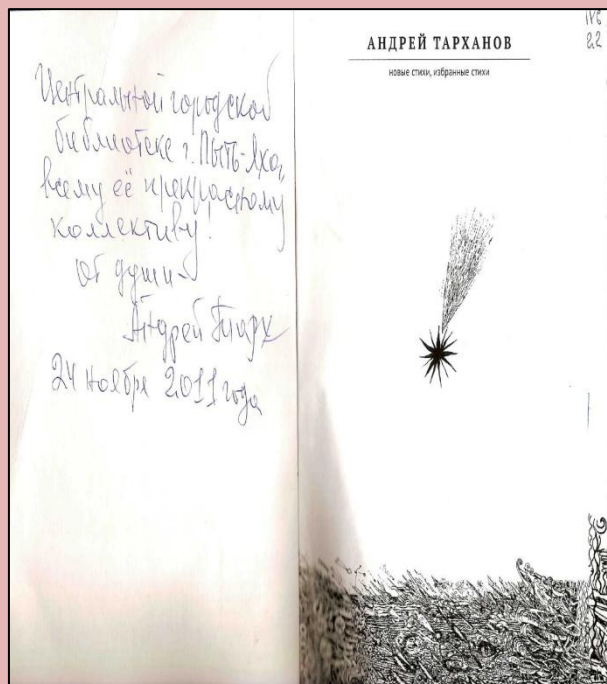 Центральной городской
библиотеке г. Пыть-Яха,
всему её прекрасному
коллективу.
От души –
Андрей Тарх
24 ноября 2011 года
АНДРЕЙ ТАРХАНОВ
новые стихи, избранные стихи